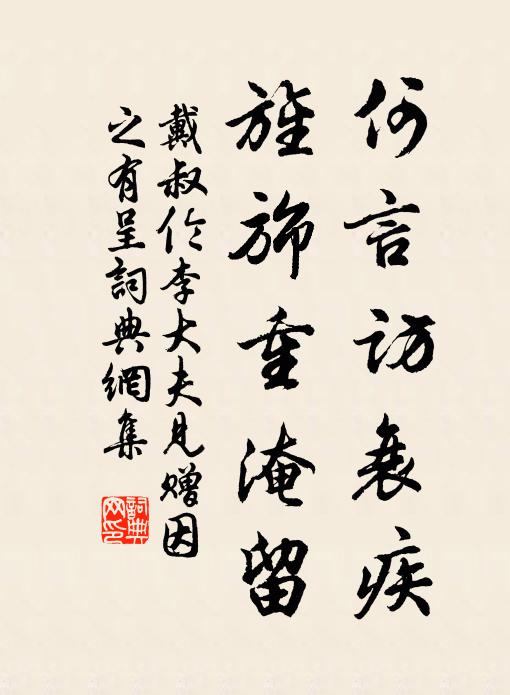 何言访衰疾
旌旆重淹留
戴叔伦李大夫见赠因
之有呈詞典網集
詞典
网印